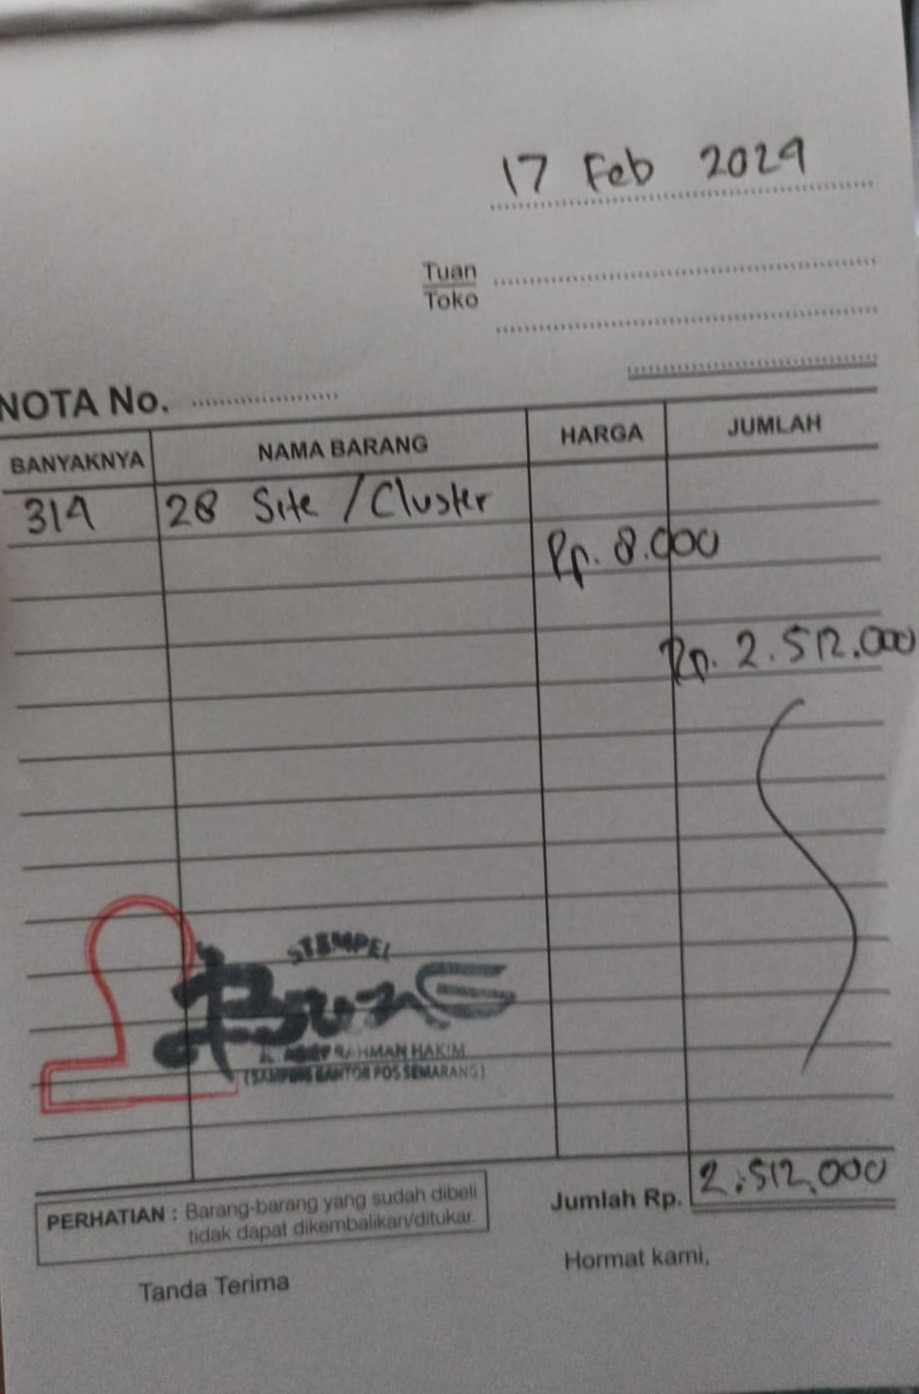 17 Feb 2024
Tuan
Toko
NOTA No.
BANYAKNYA NAMA BARANG HARGA JUMLAH
314 28 Site / Cluster
Rp. 8.000
Rp. 2.512.000
STEMPEL
RAHMAN HAKIM
(SAMPING KANTOR POS SEMARANG)
Jumlah Rp. 2.512.000
PERHATIAN : Barang-barang yang sudah dibeli
tidak dapat dikembalikan/ditukar.
Tanda Terima Hormat kami,